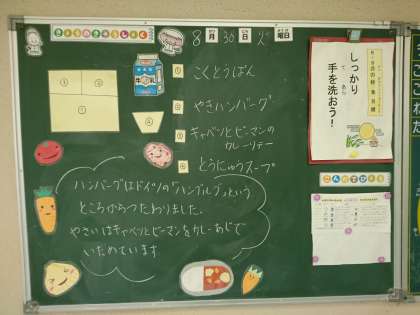 きょうのきゅうしょく
8月30日 曜日
牛乳
① こくとうぱん
② やきハンバーグ
③ キャベツとピーマンの
カレーソテー
④ とうにゅうスープ
① ②
③ ④
ハンバーグはドイツの「ハンブルブ」という
ところからつたわりました。
やさいはキャベツとピーマンをカレーあじで
いためています
しっかり
手を洗おう!
て あら
こんだてひょう